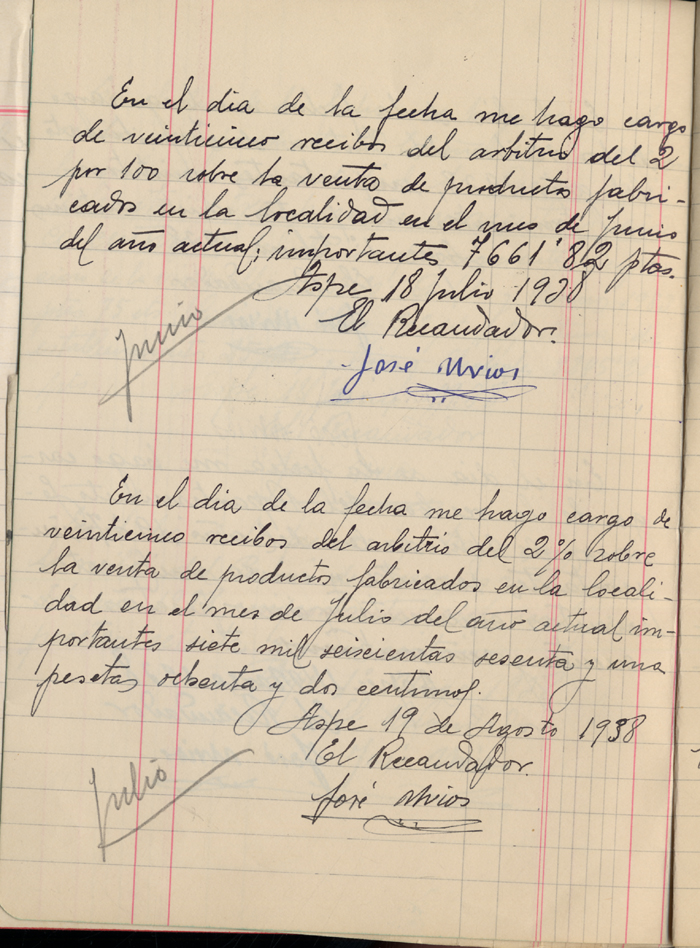 En el dia de la fecha me hago cargo
de veinticinco recibos del arbitrio del 2
por 100 sobre la venta de productos fabri-
cados en la localidad en el mes de Junio
del año actual, importantes 7661'82 ptas.
Aspe 18 Julio 1938
El Recaudador.
Junio
José
En el dia de la fecha me hago cargo de
veinticinco recibos del arbitrio del 2% sobre
la venta de productos fabricados en la locali-
dad en el mes de Julio del año actual im-
portantes siete mil seiscientas sesenta y una
pesetas ochenta y dos centimos.
Aspe 19 de Agosto 1938
El Recaudador.
Julio
José